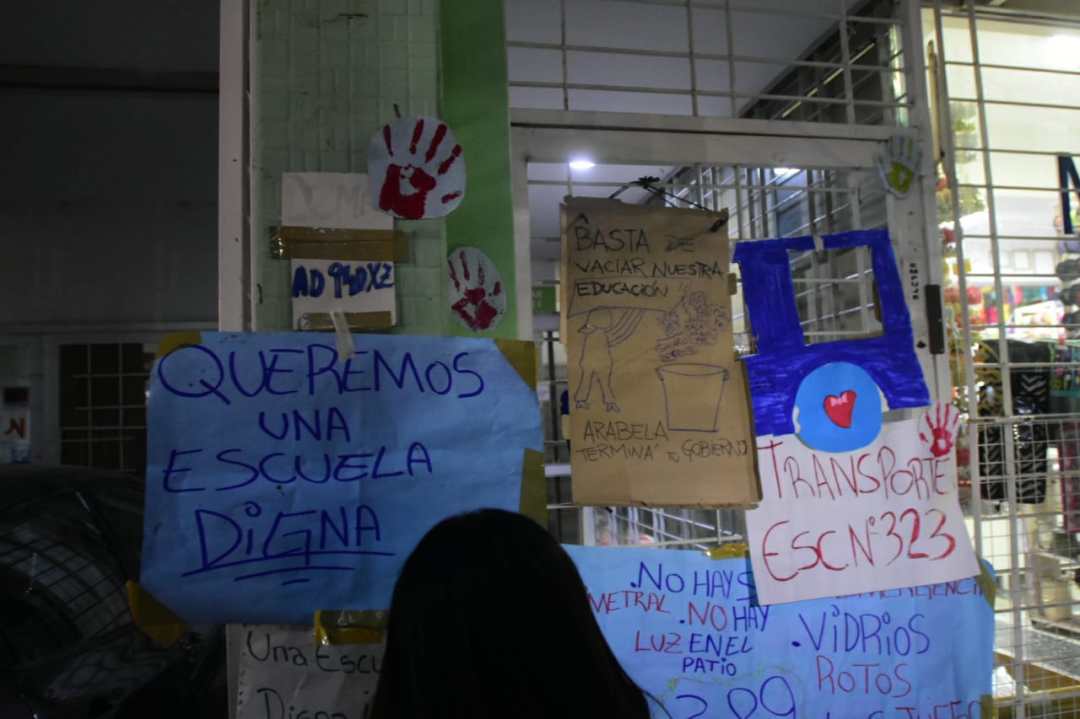 AD 940XZ
QUEREMOS
UNA
ESCUELA
DiGNA
BASTA DE
VACIAR NUESTRA
EDUCACIÓN
ARABELA
TERMINÁ TU GOBIERNO
TRANSPORTE
ESC N°323
.NO HAY
METRAL .NO HAY
LUZ EN EL
PATIO
.VIDRIOS
ROTOS
Una
Digna